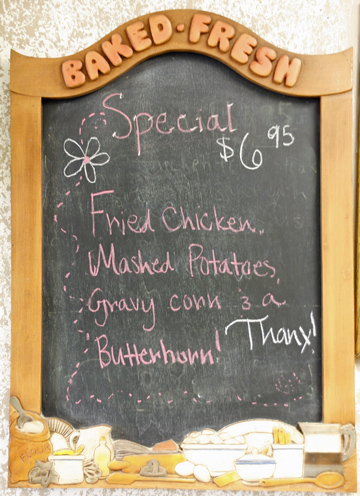 BAKED·FRESH
Special
$6.95
Fried Chicken,
Mashed Potatoes,
Gravy corn & a
Butterhorn!
Thanx!